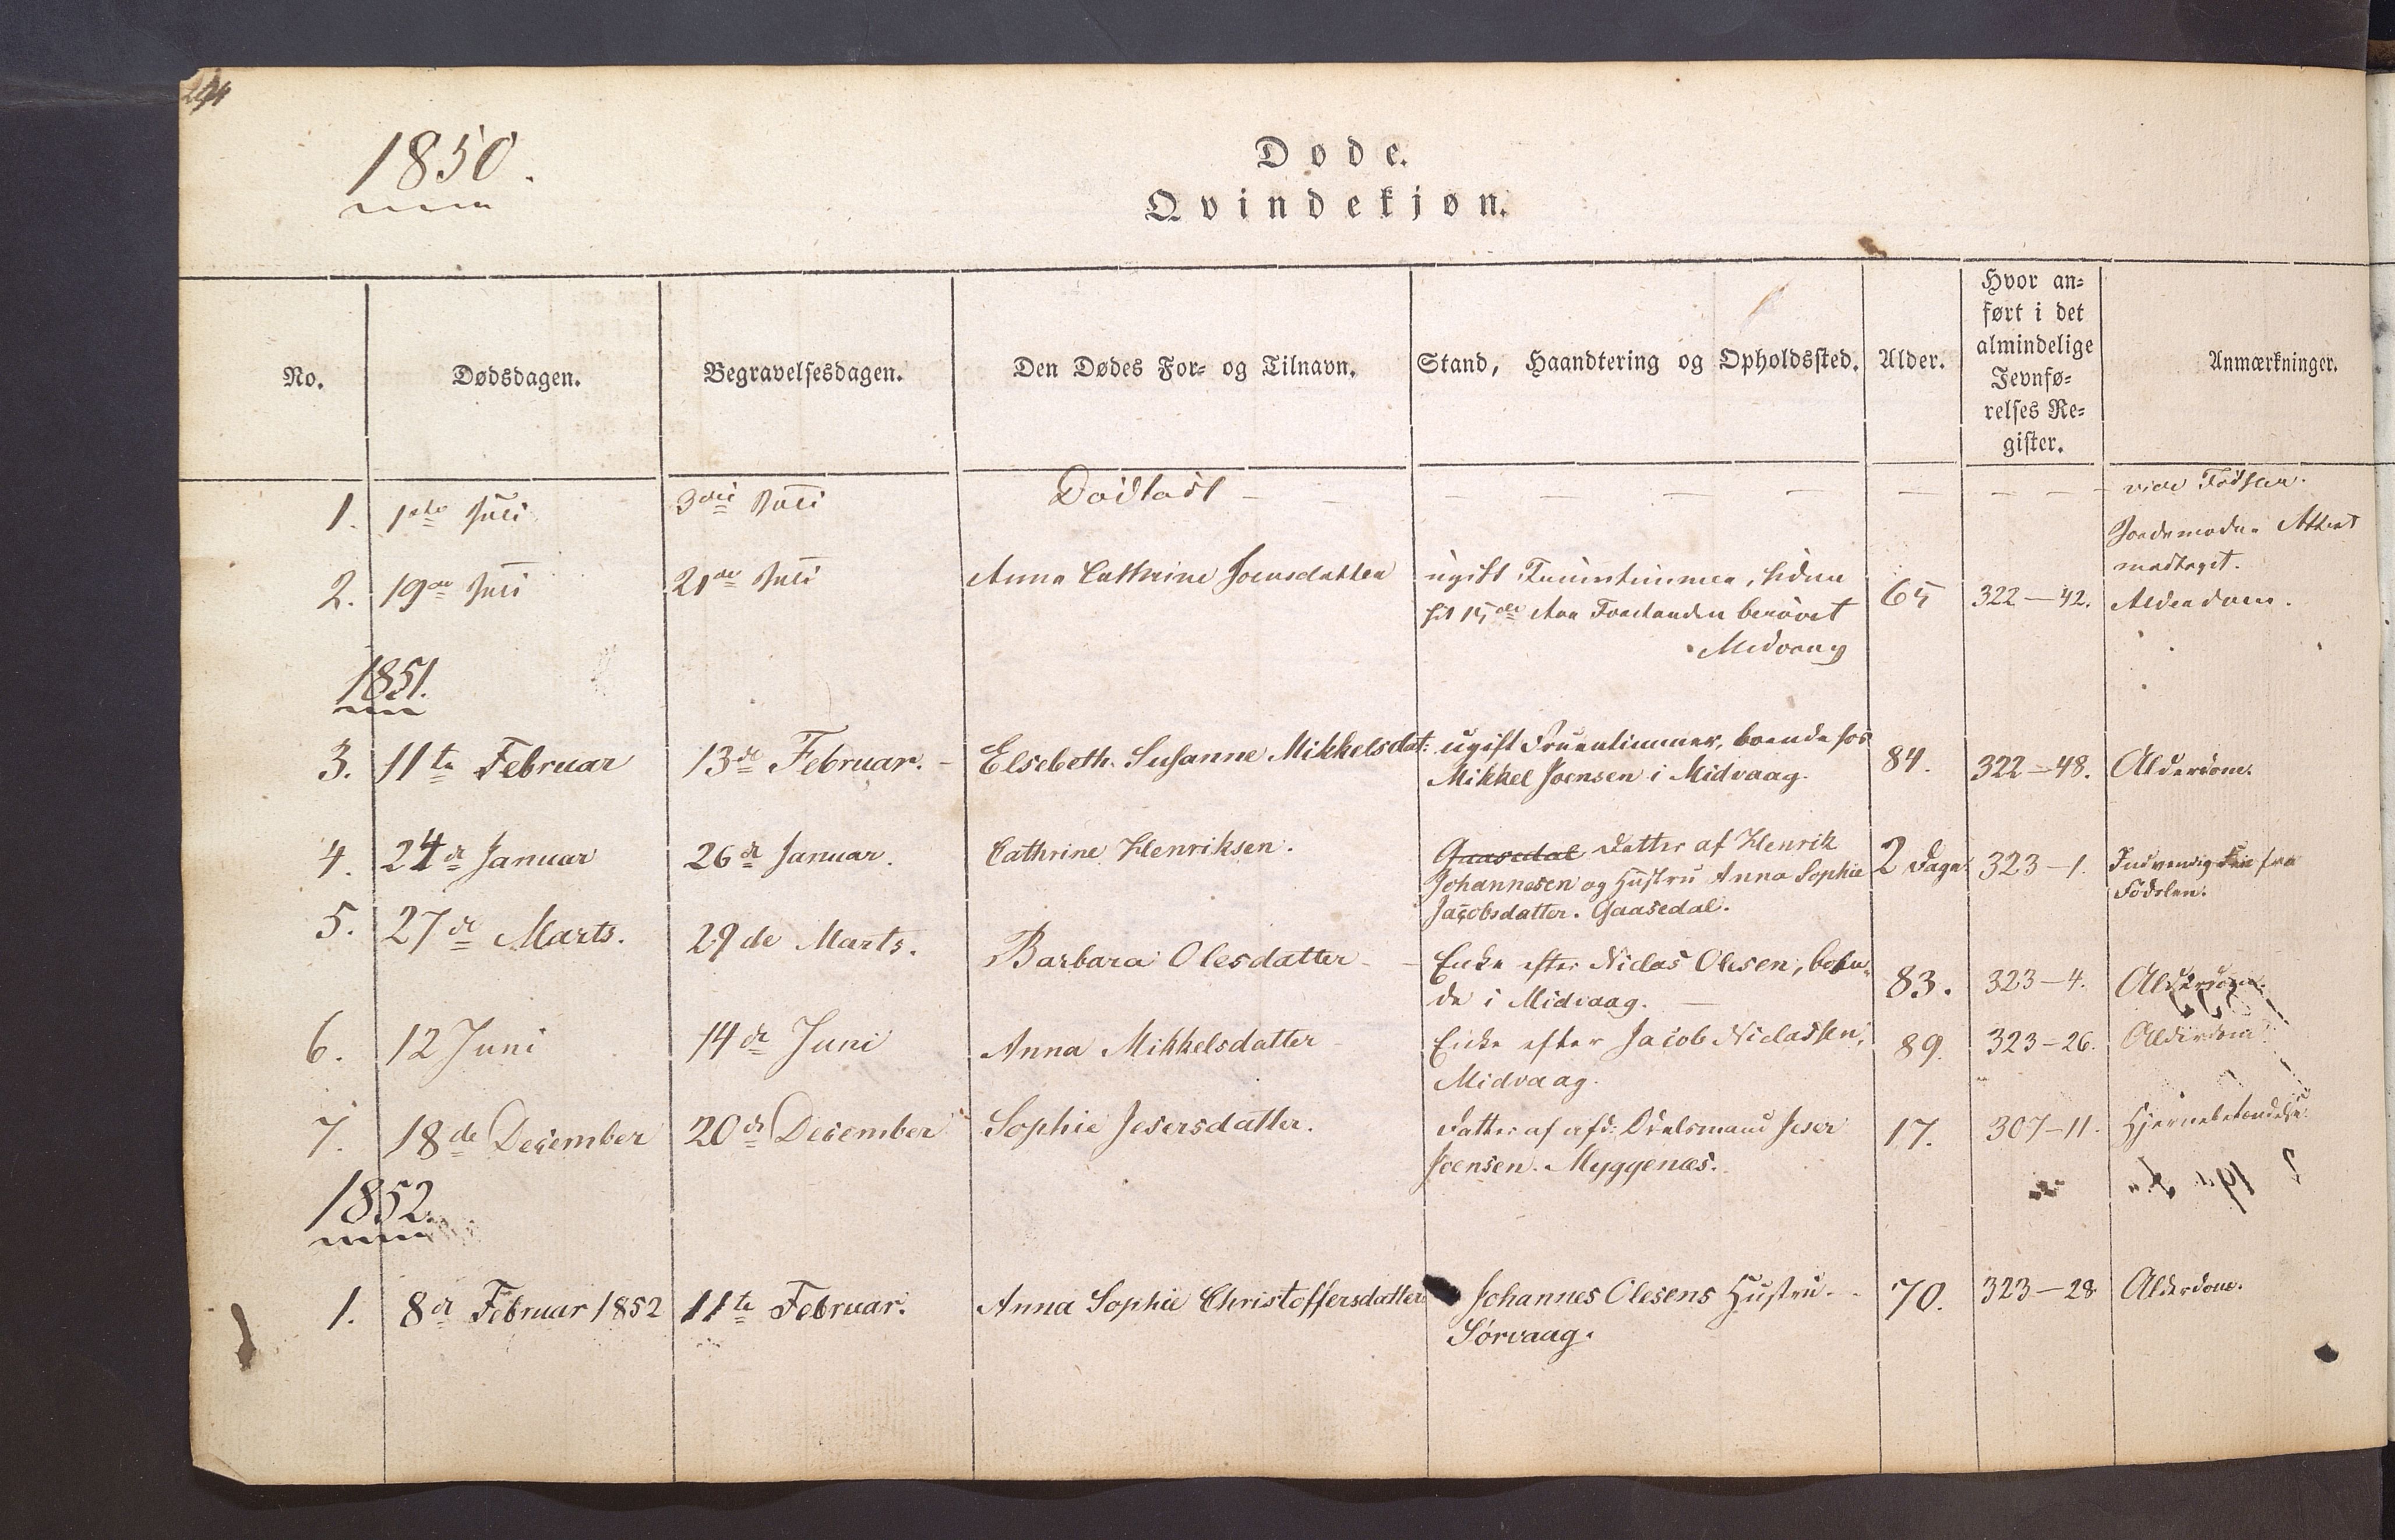 294
1850.
Døde.
Qvindekjøn.
No. Dødsdagen. Begravelsesdagen. Den Dødes For- og Tilnavn. Stand, Haandtering og Opholdssted. Alder. Hvor an-
ført i det
almindelige
Jevnfø-
relses Re-
gister. Anmærkninger.
1. 1ste Juli 3die Juli Dødfødt — — — — — — — — — vide Fødslen.
Jordemoder Attest
modtaget.
2. 19de Juli 21de Juli Anna Cathrine Joensdatter ugift Fruentimmer, siden 65 322—42. Alderdom.
sit 15de Aar Forstanden berøvet
Midvaag
1851.
3. 11te Februar 13de Februar. Elsebeth Susanne Mikkelsdat: ugift Fruentimmer, boende hos 84. 322—48. Alderdom.
Mikkel Joensen i Midvaag.
4. 24de Januar 26de Januar. Cathrine Henriksen. Gaasedal Datter af Henrik 2 Dage 323—1. Indvendig fra
Johannesen og Hustru Anna Sophie Fødslen.
Jacobsdatter. Gaasedal.
5. 27de Marts. 29de Marts. Barbara Olesdatter Enke efter Niclas Olesen, boen-
de i Midvaag. 83. 323—4. Alderdom.
6. 12 Juni 14de Juni Anna Mikkelsdatter Enke efter Jacob Niclassen, 89. 323—26. Alderdom.
Midvaag.
7. 18de December 20de December Sophie Jesersdatter. Datter af afd: Odelsmand Jeser 17. 307—11. Hjernebetændelse.
Joensen. Myggenæs.
1852.
1. 8de Februar 1852 11te Februar. Anna Sophie Christoffersdatter Johannes Olesens Hustru. 70. 323—28 Alderdom.
Sørvaag.